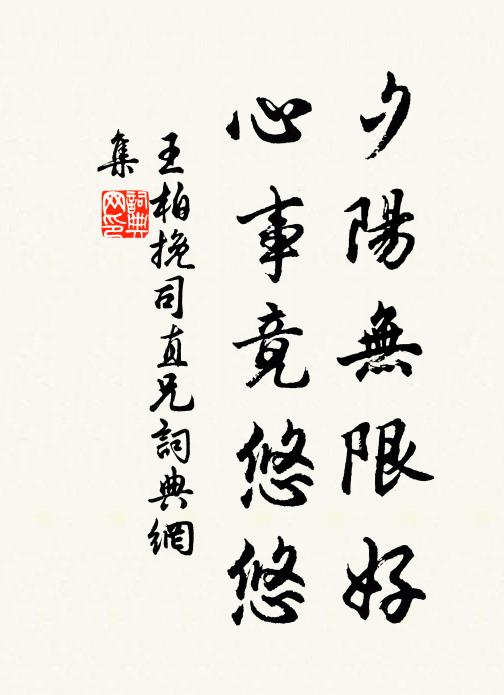 夕陽無限好
心事竟悠悠
王柏挽司直兄詞典網
集
詞典
网印